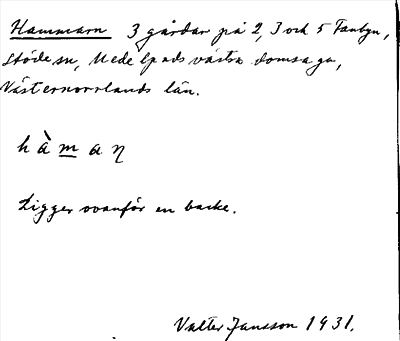 Hammarn 3 gårdar på 2, 3 och 5 Fanbyn,
Stöde sn, Medelpads västra domsaga,
Västernorrlands län.
hàmaŋ
Ligger ovanför en backe.
Valter Jansson 1931.